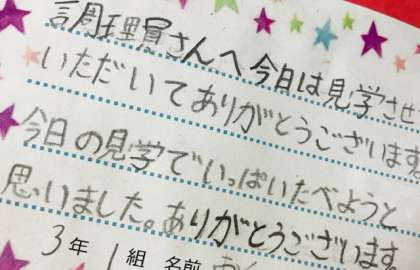 調理員さんへ今日は見学させ
いただいてありがとうございます
今日の見学でいっぱいたべようと
思いました。ありがとうございます
3年1組 名前